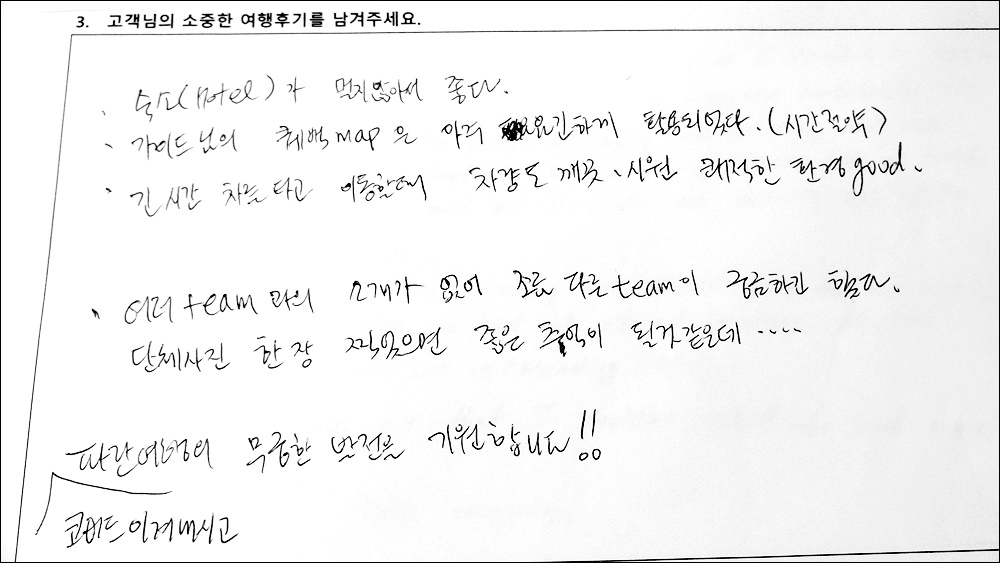 3. 고객님의 소중한 여행후기를 남겨주세요.
· 숙소(Hotel)가 멀지않아서 좋다.
· 가이드님의 퀘백map은 아주 요긴하게 활용되었다.(시간절약)
· 긴시간 차를타고 이동할때 차량도 깨끗、시원 쾌적한 환경good.
· 여러team과의 소개가 없어 조금 다른team이 궁금하긴 했다.
단체사진 한장 찍었으면 좋은 추억이 될것같은데 ····
파란여행의 무궁한 발전을 기원합니다!!
코비드 이겨내시고